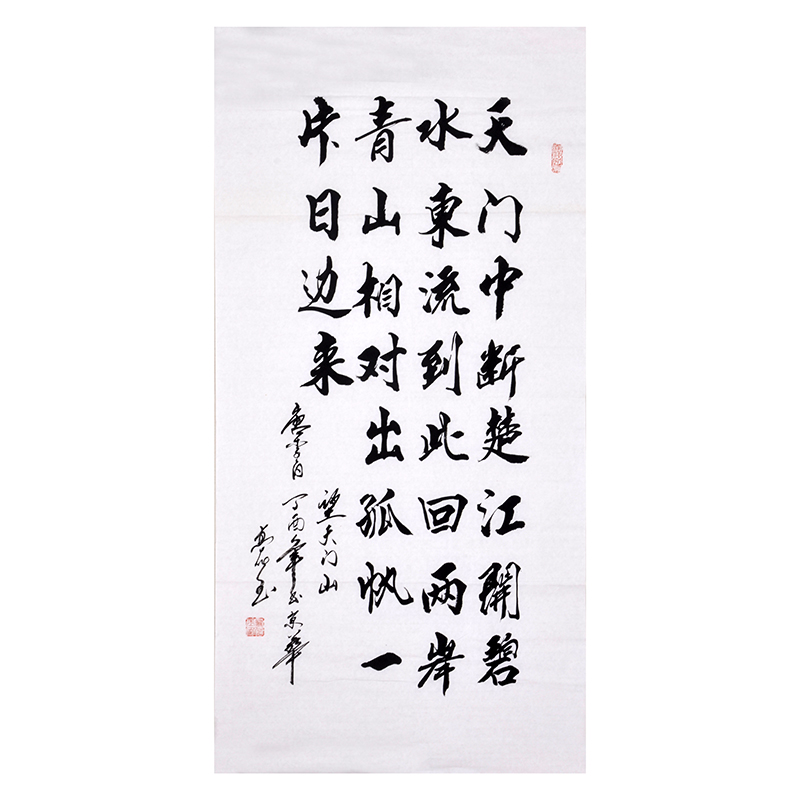 天门中断楚江開碧
水東流到此回两岸
青山相对出孤帆一
片日边来
望天门山
唐李白 丁酉年 京華